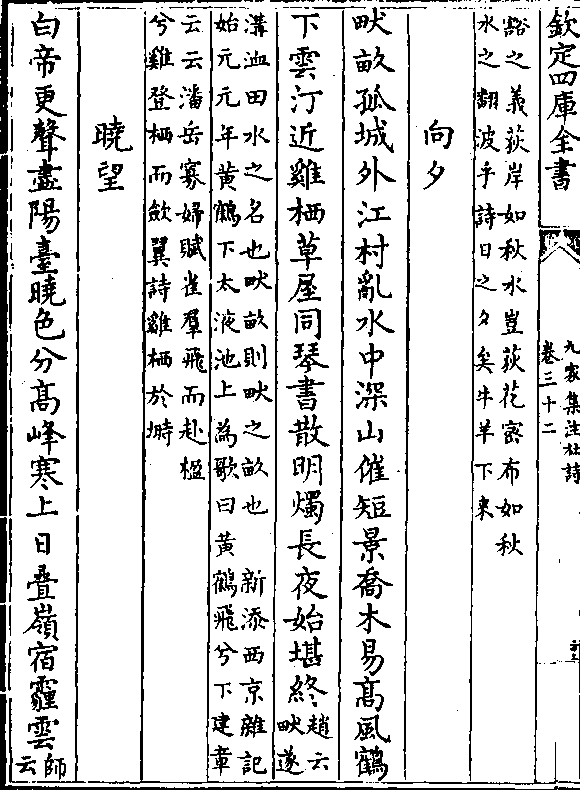 欽定四庫全書
九家集注杜詩
卷三十二
谿之義荻岸如秋水豈荻花密布如秋
水之翻波乎詩日之夕矣牛羊下来
向夕
畎畝孤城外江村亂水中深山催短景喬木易髙風鶴
下雲汀近雞栖草屋同琴書散明燭長夜始堪終
趙云
畎遂
溝洫田水之名也畎畝則畎之畝也 新添西京雜記
始元元年黄鶴下太液池上為歌曰黄鶴飛兮下建章
云云潘岳寡婦賦雀羣飛而赴楹
兮雞登栖而歛翼詩雞栖於塒
曉望
白帝更聲盡陽臺曉色分髙峰寒上日疊嶺宿霾雲
師
云